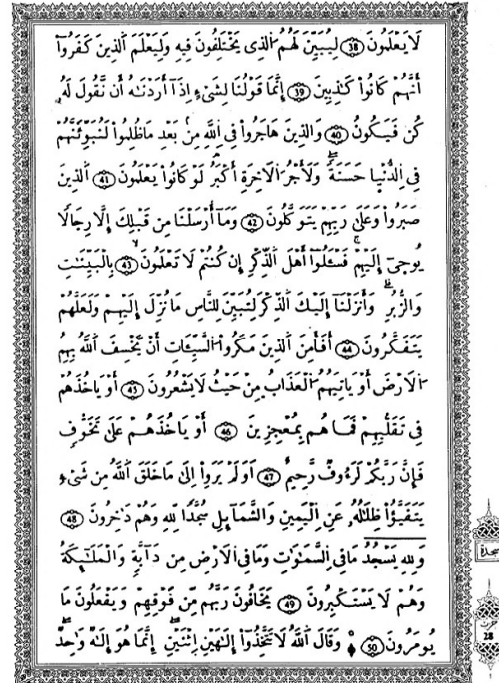 لَا يَعْلَمُونَ 38 لِيُبَيِّنَ لَهُمُ الَّذِى يَخْتَلِفُونَ فِيهِ وَلِيَعْلَمَ الَّذِينَ كَفَرُوٓا
أَنَّهُمْ كَانُوا كَٰذِبِينَ 39 إِنَّمَا قَوْلُنَا لِشَىْءٍ اِذَآ أَرَدْنَٰهُ أَن نَّقُولَ لَهُۥ
كُن فَيَكُونُ 40 وَالَّذِينَ هَاجَرُوا فِى اِللَّهِ مِنۢ بَعْدِ مَا ظُلِمُوا لَنُبَوِّئَنَّهُمْ
فِى اِلدُّنْيَا حَسَنَةً وَلَأَجْرُ اُلَاخِرَةِ أَكْبَرُ لَوْ كَانُوا يَعْلَمُونَ 41 اَلَّذِينَ
صَبَرُوا وَعَلَىٰ رَبِّهِمْ يَتَوَكَّلُونَ 42 وَمَآ أَرْسَلْنَا مِن قَبْلِكَ إِلَّا رِجَالًا
يُوحَىٰٓ إِلَيْهِمْ فَسْـَٔلُوٓا أَهْلَ اَلذِّكْرِ إِن كُنتُمْ لَا تَعْلَمُونَ 43 بِالْبَيِّنَٰتِ
وَالزُّبُرِ وَأَنزَلْنَآ إِلَيْكَ اَلذِّكْرَ لِتُبَيِّنَ لِلنَّاسِ مَا نُزِّلَ إِلَيْهِمْ وَلَعَلَّهُمْ
يَتَفَكَّرُونَ 44 أَفَأَمِنَ اَلَّذِينَ مَكَرُوا اُلسَّيِّـَٔاتِ أَنْ يَّخْسِفَ اَللَّهُ بِهِمُ
اُلَارْضَ أَوْ يَاتِيَهُمُ اُلْعَذَابُ مِنْ حَيْثُ لَا يَشْعُرُونَ 45 أَوْ يَاخُذَهُمْ
فِى تَقَلُّبِهِمْ فَمَا هُم بِمُعْجِزِينَ 46 أَوْ يَاخُذَهُمْ عَلَىٰ تَخَوُّفٍ
فَإِنَّ رَبَّكُمْ لَرَءُوفٌ رَّحِيمٌ 47 اَوَلَمْ يَرَوِا اِلَىٰ مَا خَلَقَ اَللَّهُ مِن شَىْءٍ
يَتَفَيَّؤُا ظِلَٰلُهُۥ عَنِ اِلْيَمِينِ وَالشَّمَآئِلِ سُجَّدًا لِّلهِ وَهُمْ دَٰخِرُونَ 48
وَلِلهِ يَسْجُدُ مَا فِى اِلسَّمَٰوَٰتِ وَمَا فِى اِلَارْضِ مِن دَآبَّةٍ وَالْمَلَٰٓئِكَةُ
وَهُمْ لَا يَسْتَكْبِرُونَ 49 يَخَافُونَ رَبَّهُم مِّن فَوْقِهِمْ وَيَفْعَلُونَ مَا
يُومَرُونَ 50 وَقَالَ اَللَّهُ لَا تَتَّخِذُوٓا إِلَٰهَيْنِ اِثْنَيْنِ إِنَّمَا هُوَ إِلَٰهٌ وَٰحِدٌ
سجدة
28